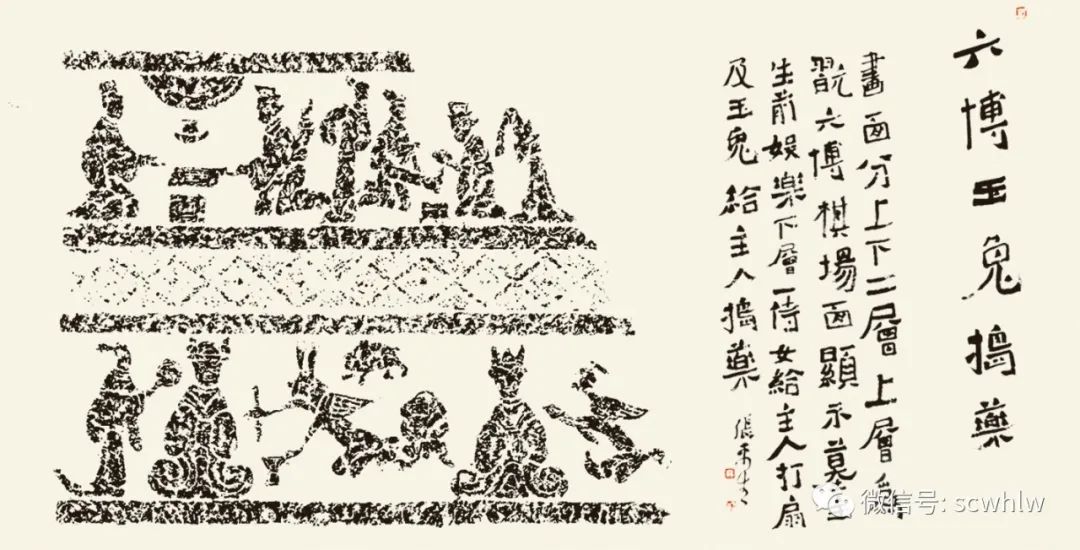 六博玉兔搗藥
畫面分上下二層上層為
翫六博棋場面顯示墓主
生前娛樂下層一侍女給主人打扇
及玉兔給主人搗藥
微信号: scwhlw